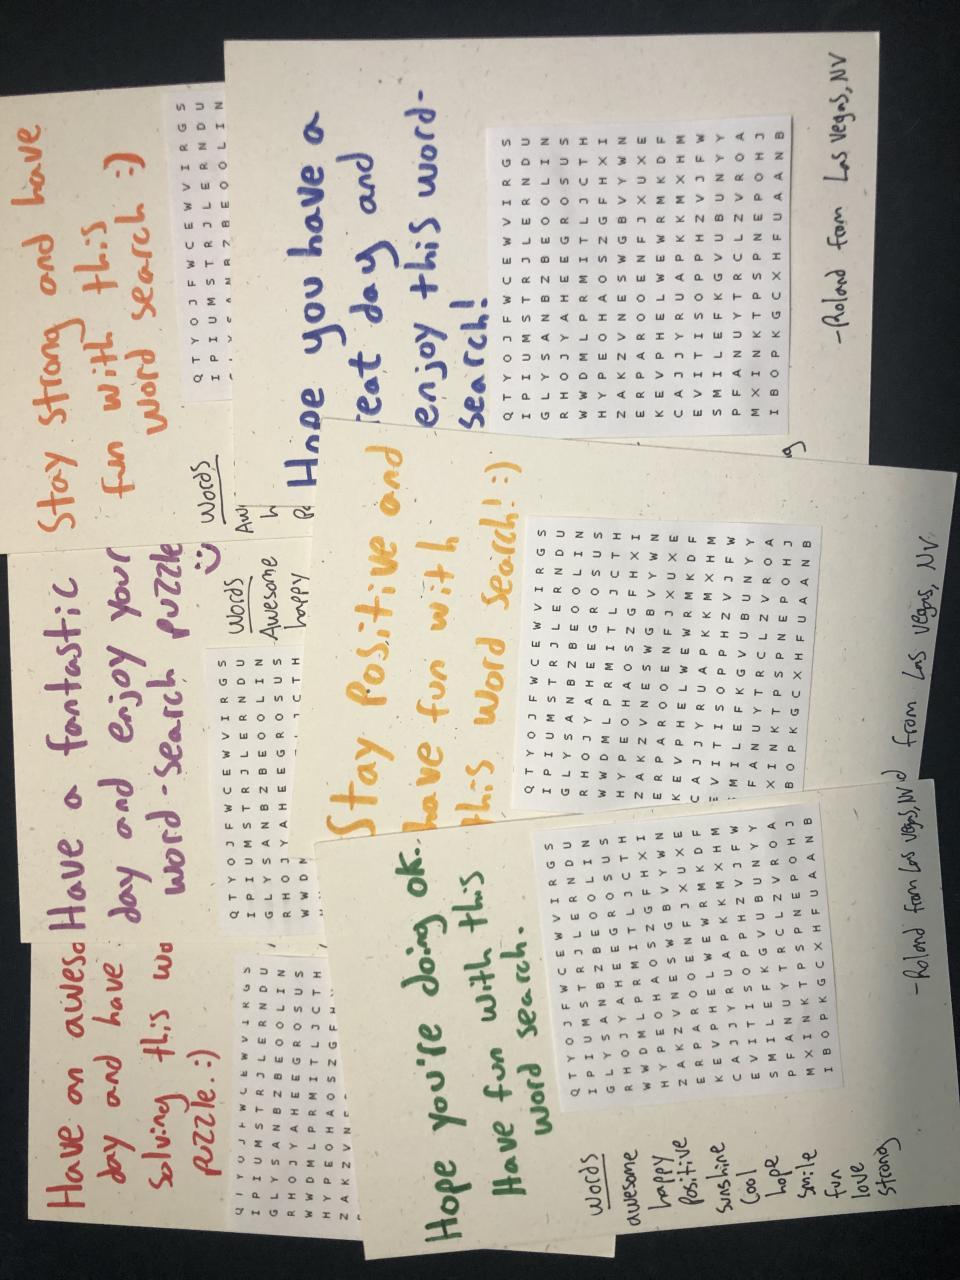 Stay strong and have
fun with this
word search :)
Words
Q T Y O J F W C E W V I R G S
I P I U M S T R J L E R N D U
B Z B E O O L I N
Hope you have a
eat day and
enjoy this word-
search!
Q T Y O J F W C E W V I R G S
I P I U M S T R J L E R N D U
G L Y S A N B Z B E O O L I N
R H O J Y A H E E G R O S U S
W W D M L P R M I T L J C T H
H Y P E O H A O S Z G F H X I
Z A K Z V N E S W G B V Y W N
E R P A R O O E N F J X U X E
K E V P H E L W E W R M K D F
C A J J Y R U A P K K M X H M
E V I T I S O P P H Z V J F W
S M I L E F K G V U B U N Y Y
P F A N U Y T R C L Z V R O A
M X I N K T P S P N E P O H J
I B O P K G C X H F U A A N B
-Roland from Las Vegas, NV
Have a fantastic
day and enjoy your
word-search puzzle
:)
Words
Awesome
happy
Q T Y O J F W C E W V I R G S
I P I U M S T R J L E R N D U
G L Y S A N B Z B E O O L I N
R H O J Y A H E E G R O S U S
W W D
J C T H
Stay Positive and
have fun with
this word search! :)
Q T Y O J F W C E W V I R G S
I P I U M S T R J L E R N D U
G L Y S A N B Z B E O O L I N
R H O J Y A H E E G R O S U S
W W D M L P R M I T L J C T H
H Y P E O H A O S Z G F H X I
Z A K Z V N E S W G B V Y W N
E R P A R O O E N F J X U X E
K E V P H E L W E W R M K D F
C A J J Y R U A P K K M X H M
E V I T I S O P P H Z V J F W
M I L E F K G V U B U N Y Y
F A N U Y T R C L Z V R O A
X I N K T P S P N E P O H J
B O P K G C X H F U A A N B
from Las Vegas, NV.
Have an aweso
day and have
solving this wo
puzzle. :)
Q T Y O J F W C E W V I R G S
I P I U M S T R J L E R N D U
G L Y S A N B Z B E O O L I N
R H O J Y A H E E G R O S U S
W W D M L P R M I T L J C T H
H Y P E O H A O S Z G F H
Z A K Z V N E
Hope you're doing ok.
Have fun with this
word search.
Words
awesome
happy
Positive
sunshine
Cool
hope
smile
fun
love
strong
Q T Y O J F W C E W V I R G S
I P I U M S T R J L E R N D U
G L Y S A N B Z B E O O L I N
R H O J Y A H E E G R O S U S
W W D M L P R M I T L J C T H
H Y P E O H A O S Z G F H X I
Z A K Z V N E S W G B V Y W N
E R P A R O O E N F J X U X E
K E V P H E L W E W R M K D F
C A J J Y R U A P K K M X H M
E V I T I S O P P H Z V J F W
S M I L E F K G V U B U N Y Y
P F A N U Y T R C L Z V R O A
M X I N K T P S P N E P O H J
I B O P K G C X H F U A A N B
-Roland from Las Vegas, NV